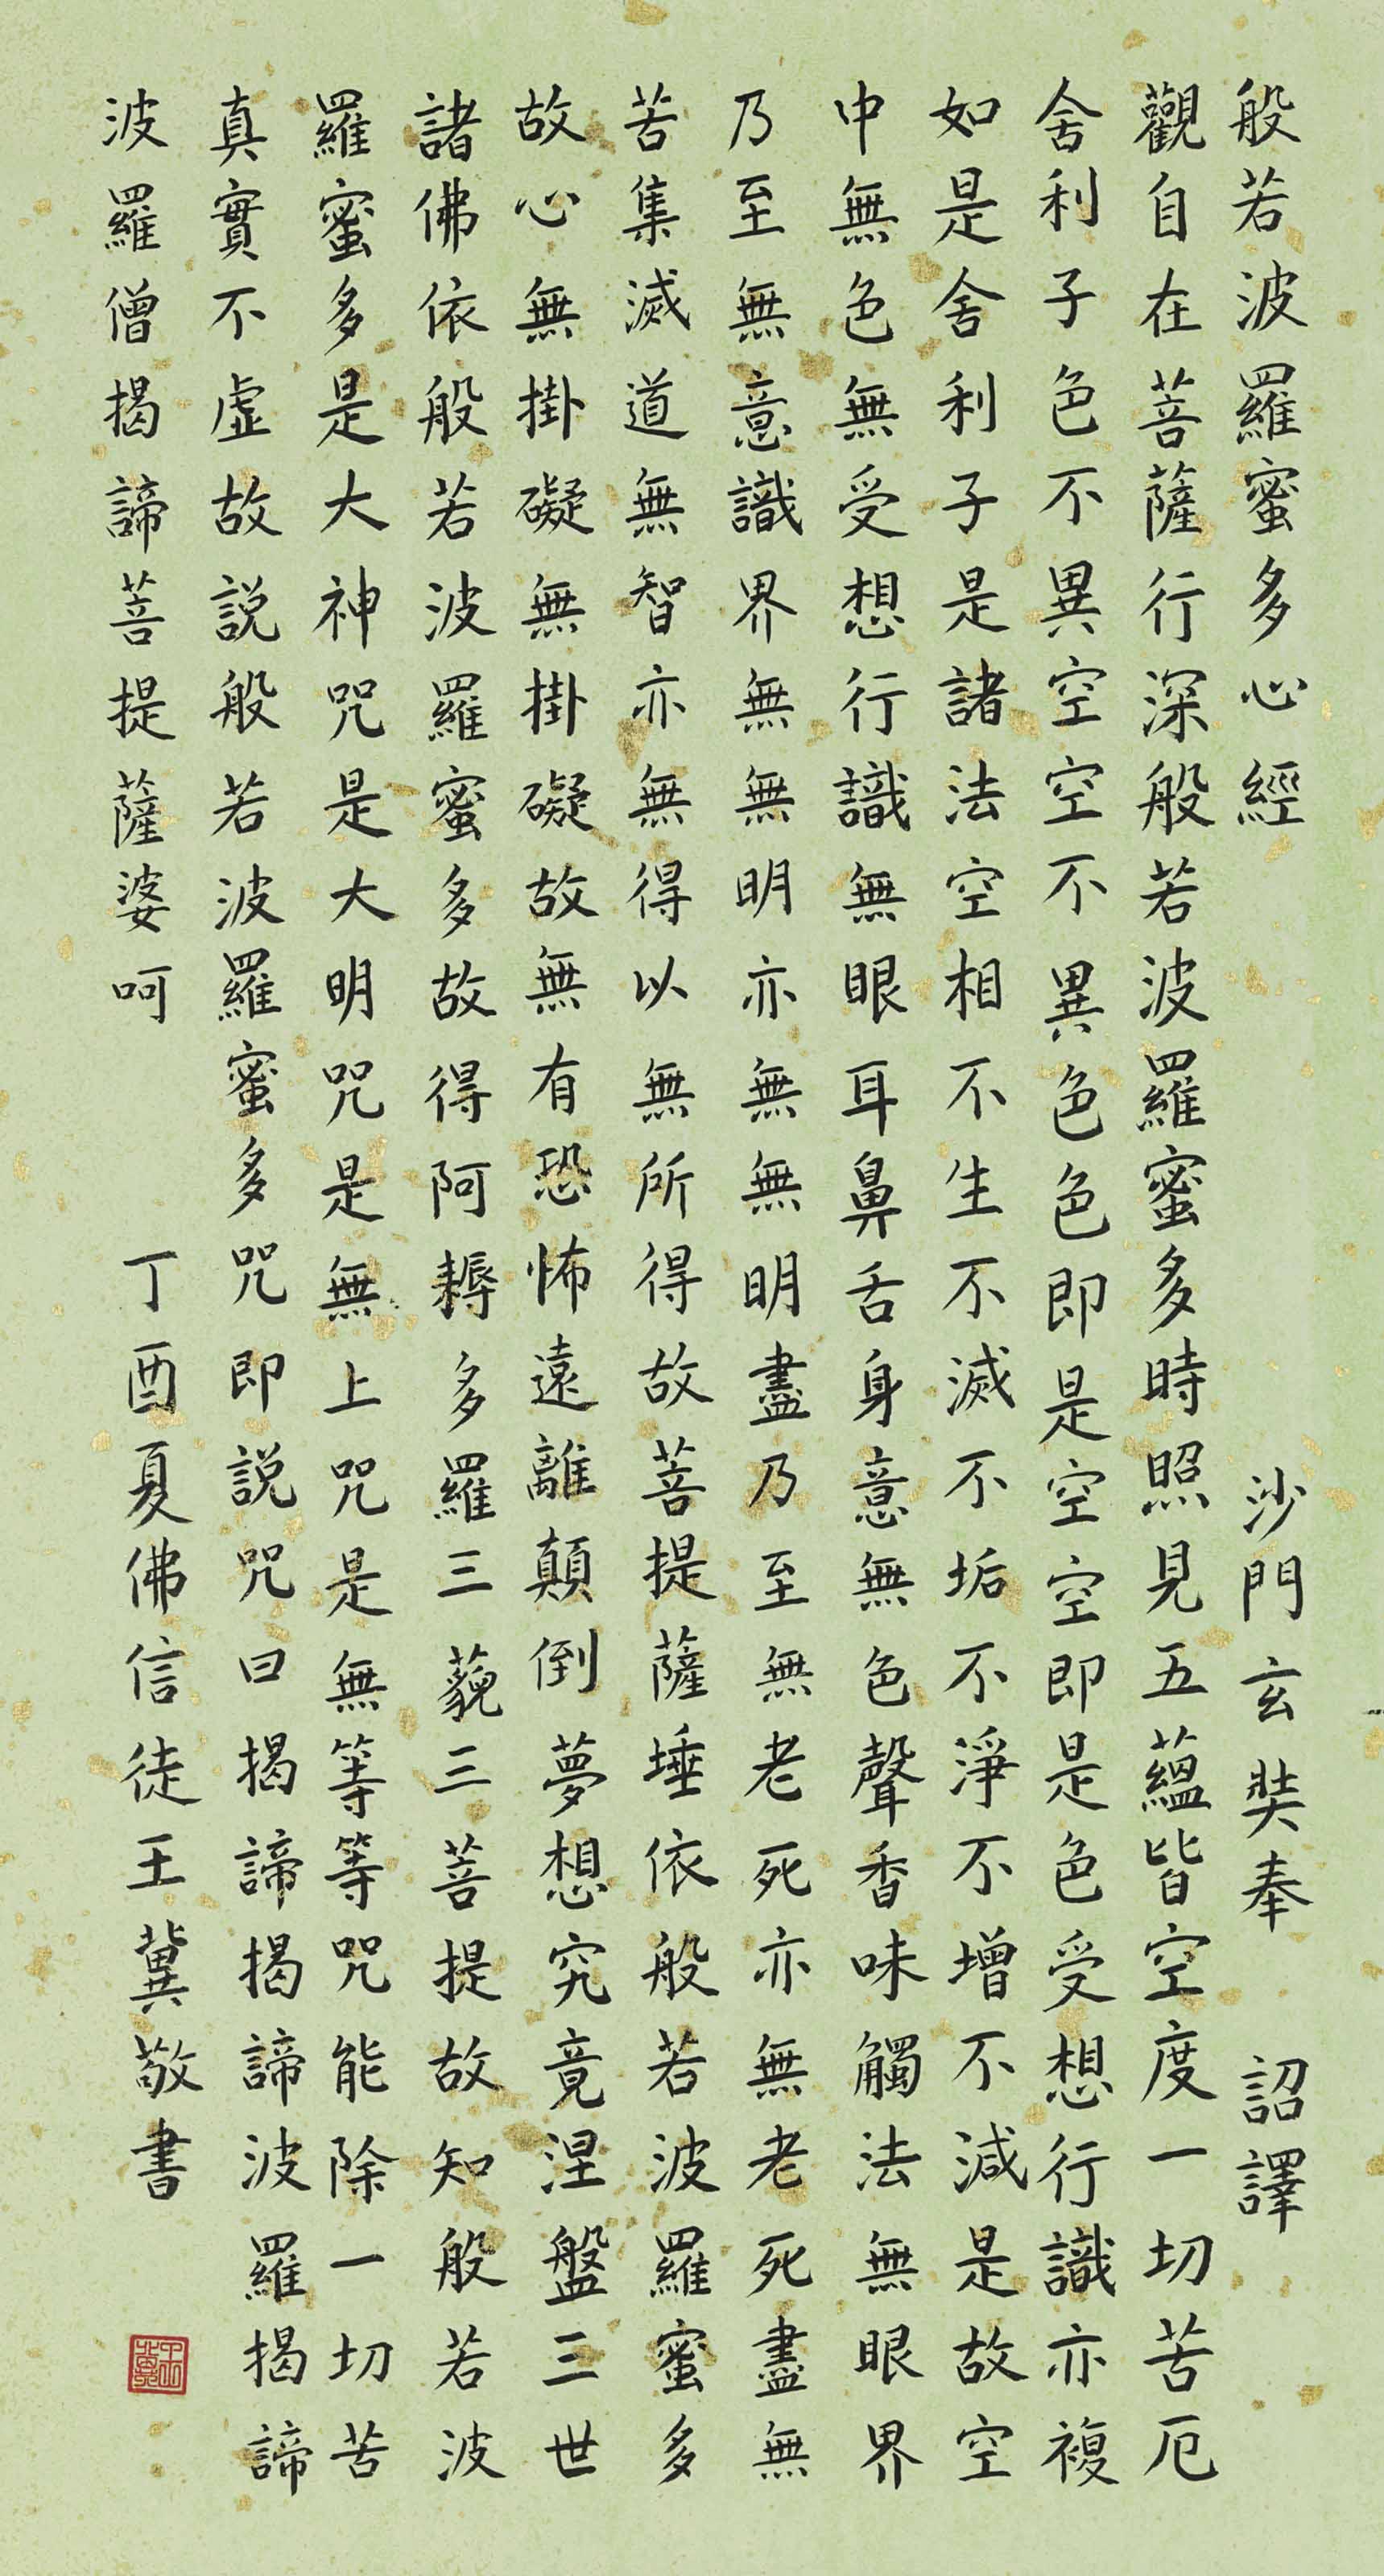 般若波羅蜜多心經 沙門玄奘奉 詔譯
觀自在菩薩行深般若波羅蜜多時照見五蘊皆空度一切苦厄
舍利子色不異空空不異色色即是空空即是色受想行識亦複
如是舍利子是諸法空相不生不滅不垢不淨不增不減是故空
中無色無受想行識無眼耳鼻舌身意無色聲香味觸法無眼界
乃至無意識界無無明亦無無明盡乃至無老死亦無老死盡無
苦集滅道無智亦無得以無所得故菩提薩埵依般若波羅蜜多
故心無掛礙無掛礙故無有恐怖遠離顛倒夢想究竟涅盤三世
諸佛依般若波羅蜜多故得阿耨多羅三藐三菩提故知般若波
羅蜜多是大神咒是大明咒是無上咒是無等等咒能除一切苦
真實不虛故説般若波羅蜜多咒即説咒曰揭諦揭諦波羅揭諦
波羅僧揭諦菩提薩婆呵 丁酉夏佛信徒王冀敬書
王冀